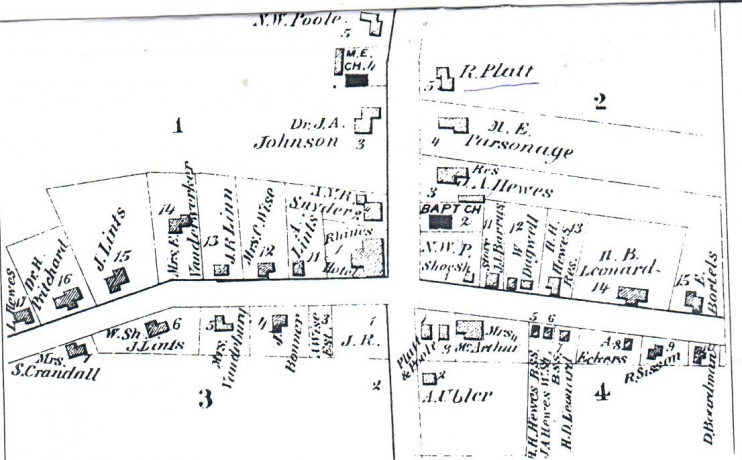 N.W. Poole.
5
M.E.
CH. 4
R. Platt
5
2
1
Dr. J.A.
Johnson
3
M.E.
Parsonage
4
Res
J.A. Hewes
3
BAPT CH
2
N.Y.R.
Snyder
2
Rhines
1
Hotel
A.
Lints
11
Mrs. C. Wise
12
J.R. Linn
13
Mrs. E.
Vanderworker
14
J. Lints
15
Dr. H.
Pritchard
16
L. Hewes
17
N.W.P.
Shoe Sh.
1
Store
11
W.
Dagwell
12
H.H.
Hewes
Res.
13
H.B.
Leonard
14
E.
Bartels
15
Mrs.
S. Crandall
7
W. Sh.
J. Lints
6
5
Mrs.
4
J.
A. Wise
Est.
3
1
J.R.
2
3
Platt
& Poole
1
3
Mrs.
4
McArthur
A. Ubler
2
5
H.H. Hewes B.SS.
6
J.A. Hewes W.Sh.
H.D. Leonard
B.SS.
A.
8
Eckers
9
R. Sisson
D. Boardman
4